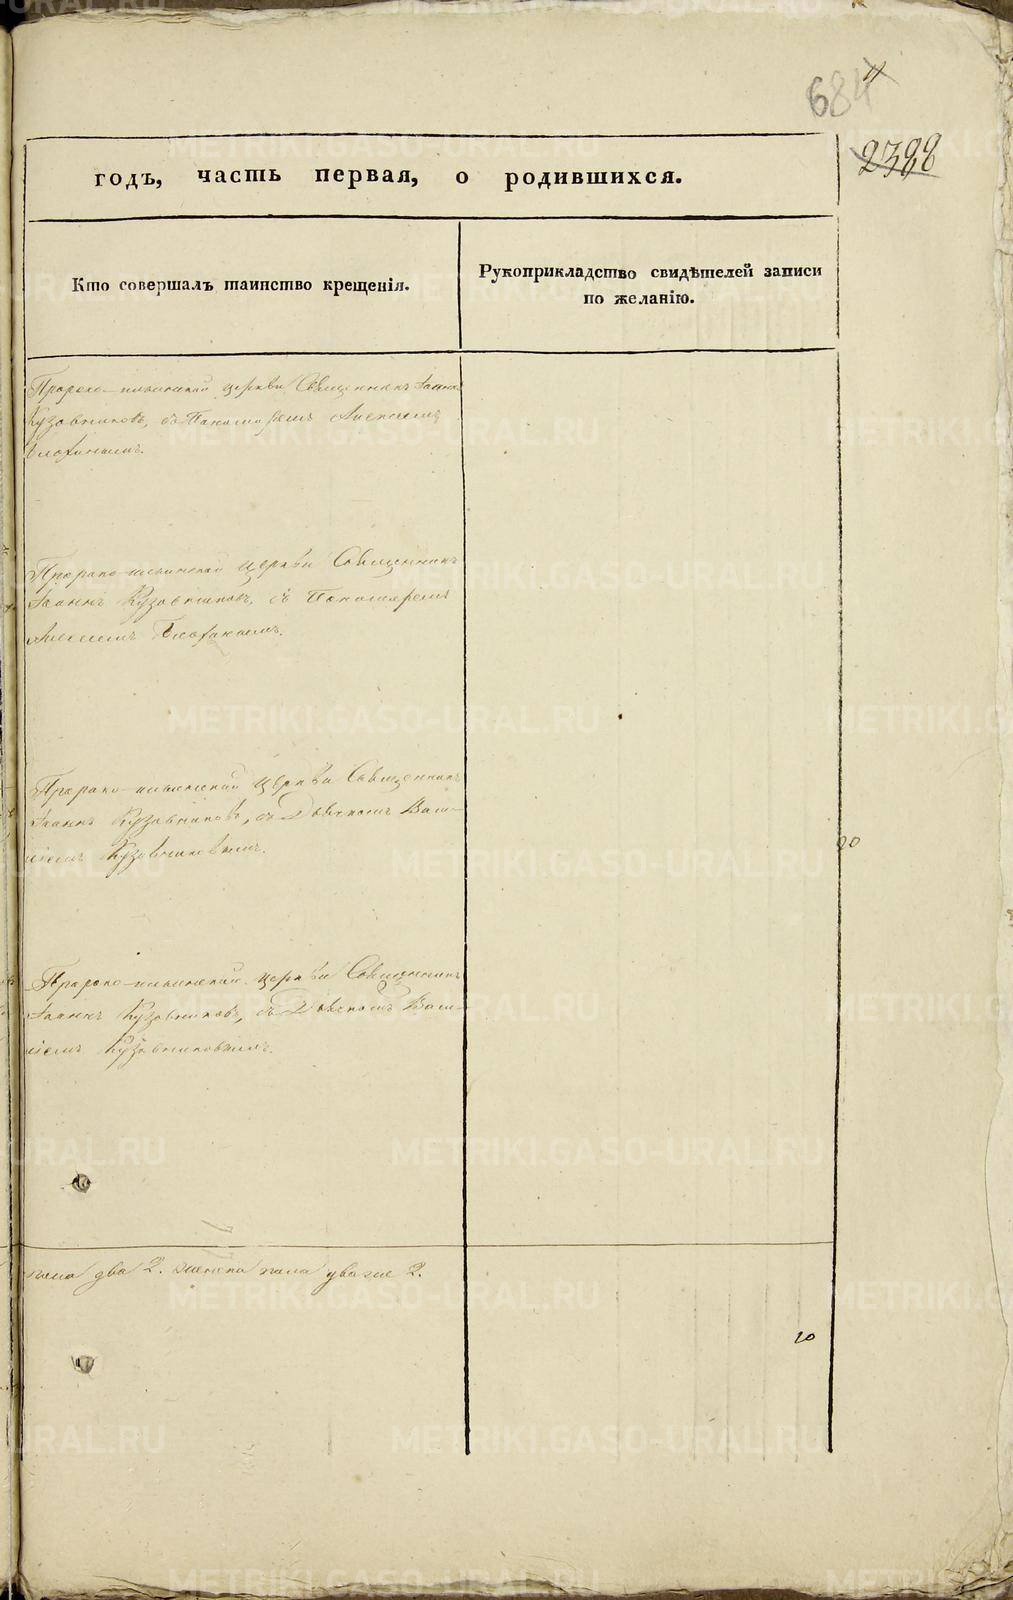 684
2388
годъ, часть первая, о родившихся.
Кто совершалъ таинство крещенія.
Рукоприкладство свидѣтелей записи
по желанію.
Пророко-ильинской церкви Священникъ Іоаннъ
Кузовниковъ, съ Пономаремъ Алексѣемъ
Пророко-ильинской церкви Священникъ
Іоаннъ Кузовниковъ, съ Пономаремъ
Алексѣемъ
Пророко-ильинской церкви Священникъ
Іоаннъ Кузовниковъ, съ Дьячкомъ Васи-
ліемъ Кузовниковымъ.
20
Пророко-ильинской церкви Священникъ
Іоаннъ Кузовниковъ, съ Дьячкомъ Васи-
ліемъ Кузовниковымъ.
пола два 2. женска пола двое 2.
20
METRIKI.GASO-URAL.RU